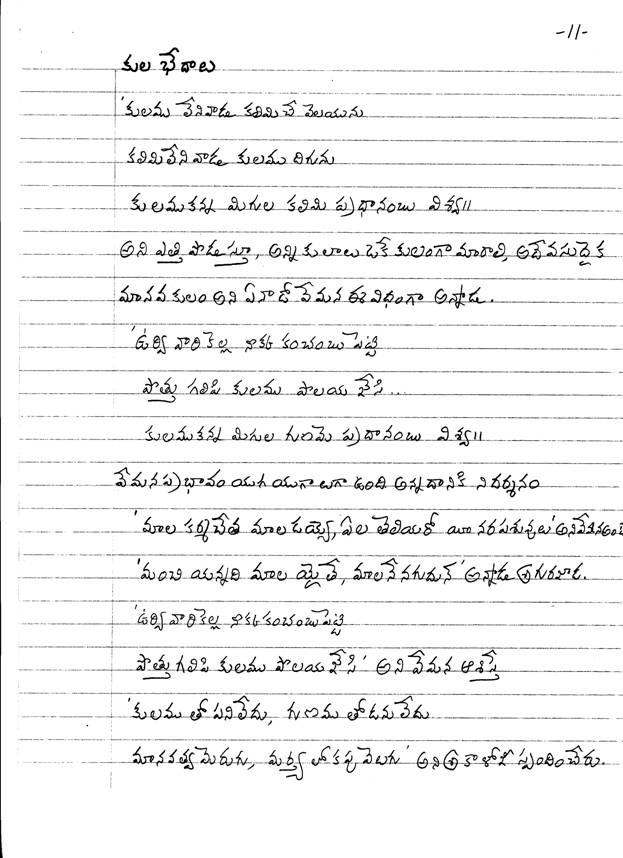 -11-
కుల భేదాలు
'కులము లేనివాడు కలిమిచే వెలయును
కలిమిలేని వాడు కులము దిగును
కులముకన్న మిగుల కలిమి ప్రధానంబు విశ్వ॥
అని ఎత్తి పొడుస్తూ, అన్ని కులాలు ఒకే కులంగా మారాలి, అదే వసుధైక
మానవకులం అని ఏనాడో వేమన ఈ విధంగా అన్నాడు.
'ఉర్వి వారికెల్ల నొకట కంచంబు పెట్టి
పొత్తు గలిపి కులము పొలయ జేసి...
కులముకన్న మిగుల గుణమె ప్రధానంబు విశ్వ॥
వేమన ప్రభావం యుగయుగాలుగా ఉంది అన్నదానికి నిదర్శనం
'మాల కర్మచేత మాలడయ్యె, ఏల తెలియరో యీ నరపశువులు' అని వేమన అంటే
'మంచి యన్నది మాల యైతే, మాలనే నగుదున్' అన్నాడు శ్రీ గురజాడ.
'ఉర్వి వారికెల్ల నొకట కంచంబు పెట్టి
పొత్తు గలిపి కులము పొలయ జేసి' అని వేమన ఆశిస్తే
'కులము తో పనిలేదు, గుణము తోడను లేదు
మానవత్వ మెరుగు, మర్త్య లోకపు వెలుగు' అని శ్రీ కాళోజీ స్పందించేరు.